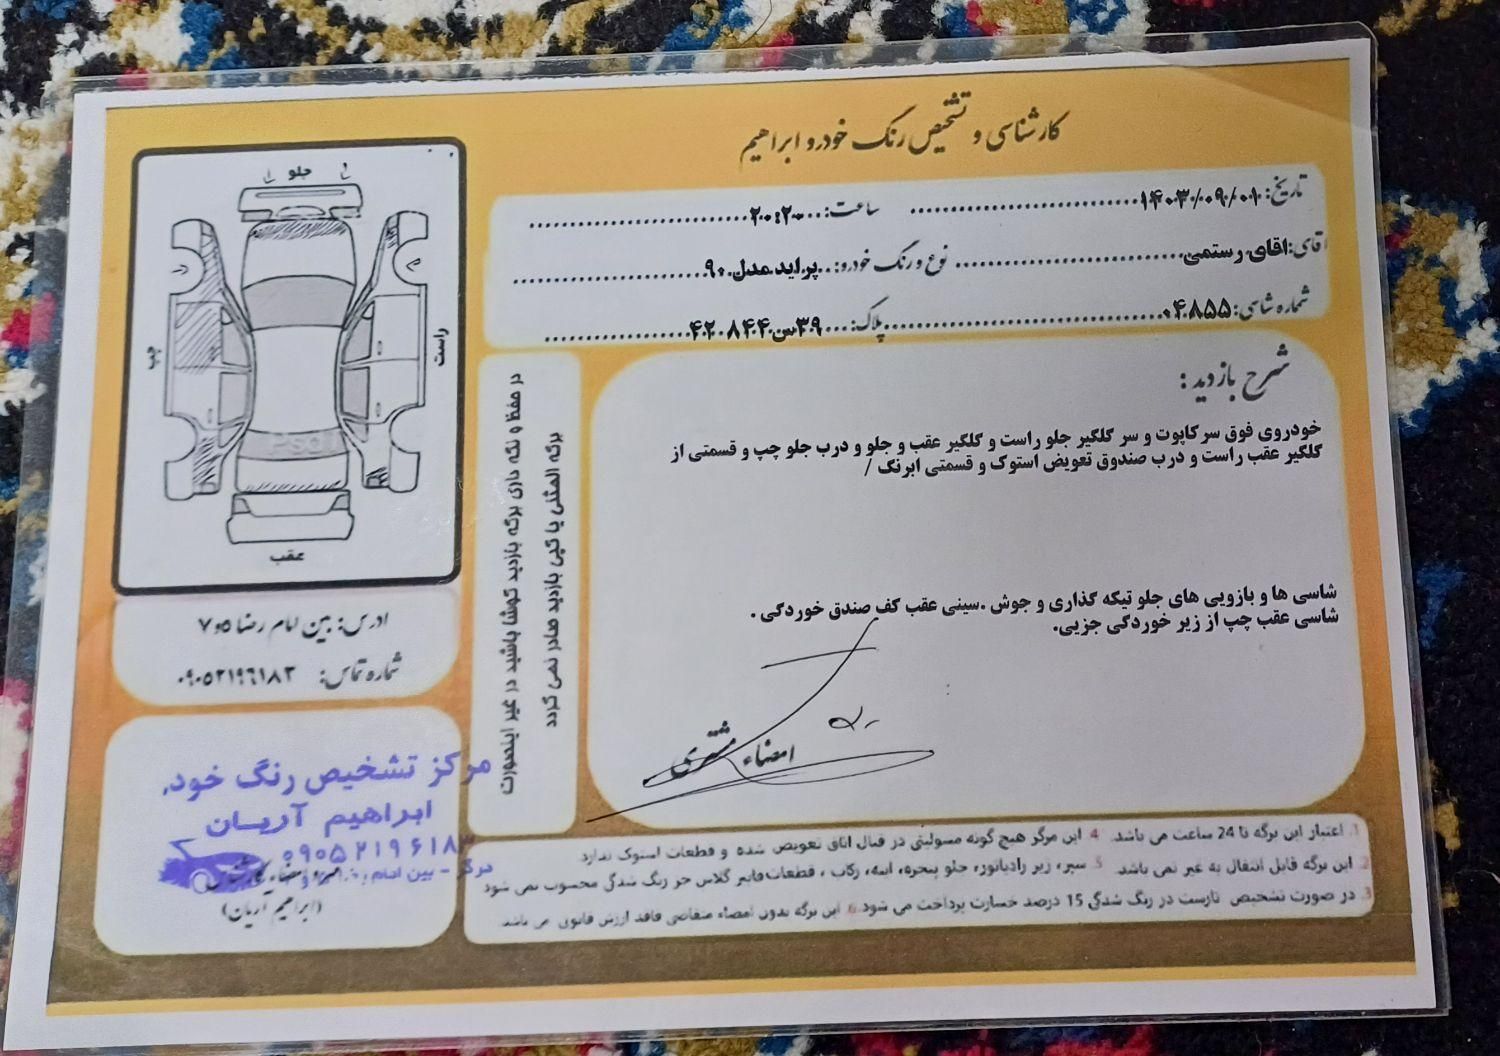 کارشناسی و تشخیص رنگ خودرو ابراهیم
تاریخ: ۱۴۰۳/۰۹/۰۱ ساعت: ۲۰:۲۰
اقای: اقای رستمی نوع و رنگ خودرو: پراید مدل ۹۰
شماره شاسی: ۰۴۸۵۵ پلاک: ۳۹س۸۴۴ ۴۲
شرح بازدید:
خودروی فوق سر کاپوت و سر گلگیر جلو راست و گلگیر عقب و جلو و درب جلو چپ و قسمتی از
گلگیر عقب راست و درب صندوق تعویض استوک و قسمتی ابرنگ /
شاسی ها و بازویی های جلو تیکه گذاری و جوش .سینی عقب کف صندق خوردگی .
شاسی عقب چپ از زیر خوردگی جزیی.
امضاء مشتری
در حفظ و نگه داری برگه بازدید کوشا باشید در غیر اینصورت
برگه المثنی یا کپی بازدید صادر نمی گردد
جلو
چپ
راست
عقب
ادرس: بین امام رضا ۵و۷
شماره تماس: ۰۹۰۵۲۱۹۶۱۸۳
مرکز تشخیص رنگ خودر
ابراهیم آریان
۰۹۰۵۲۱۹۶۱۸۳
درگز - بین امام
(ابراهیم آریان)
1. اعتبار این برگه تا 24 ساعت می باشد. 4 این مرکز هیچ گونه مسولیتی در قبال اتاق تعویض شده و قطعات استوک ندارد
2. این برگه قابل انتقال به غیر نمی باشد. 5 سپر، زیر رادیاتور، جلو پنجره، اینه، رکاب ، قطعات فایبر گلاس جز رنگ شدگی محسوب نمی شود
3. در صورت تشخیص نارست در رنگ شدگی 15 درصد خسارت پرداخت می شود. 6 این برگه بدون امضاء متقاضی فاقد ارزش قانونی می باشد